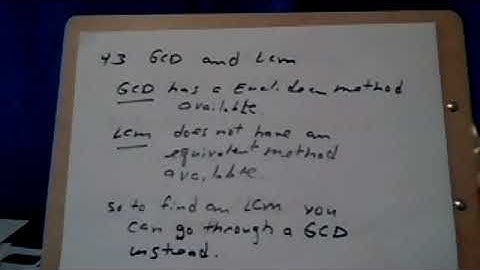 43 GCD and Lcm
GCD has a Euclidean method
available.
Lcm does not have an
equivalent method
available.
so to find an LCM you
can go through a GCD
instead.